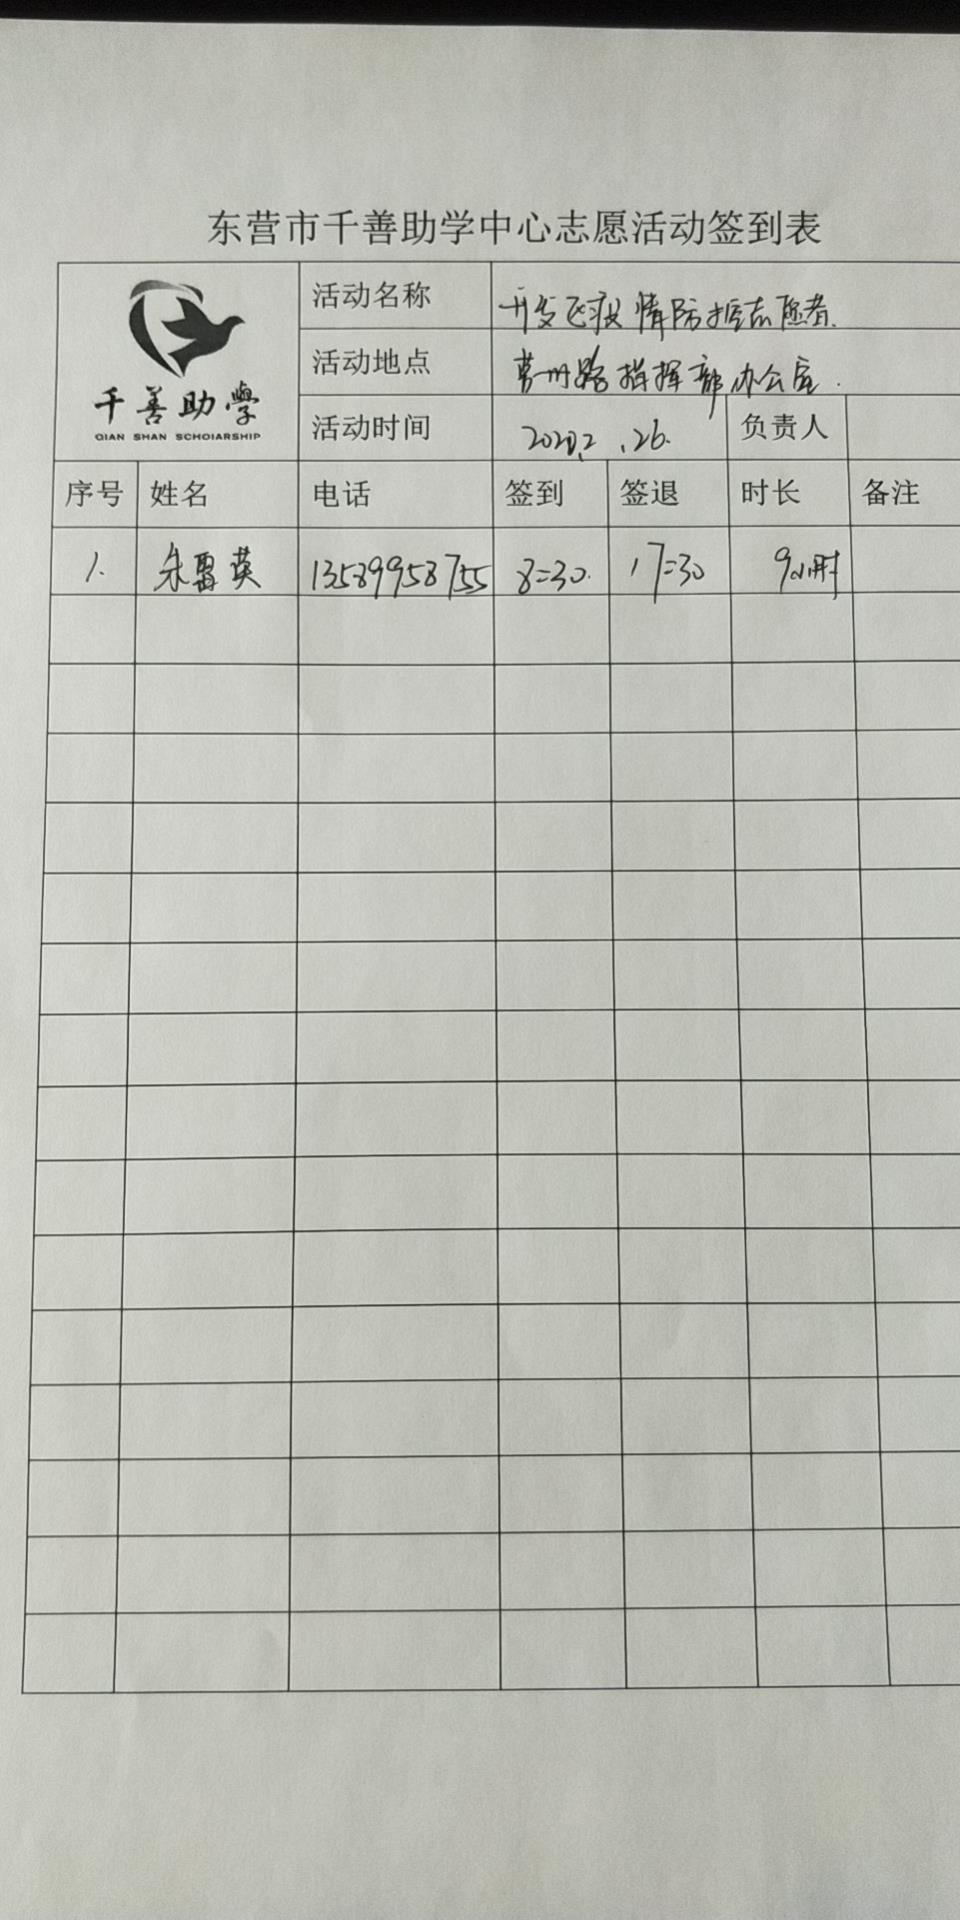 东营市千善助学中心志愿活动签到表
千善助學
QIAN SHAN SCHOIARSHIP
活动名称 开发区疫情防控志愿者.
活动地点 莒州路指挥部办公室.
活动时间 2020.2.26. 负责人
序号 姓名 电话 签到 签退 时长 备注
1. 朱 英 13589958755 8=30. 17=30 9小时